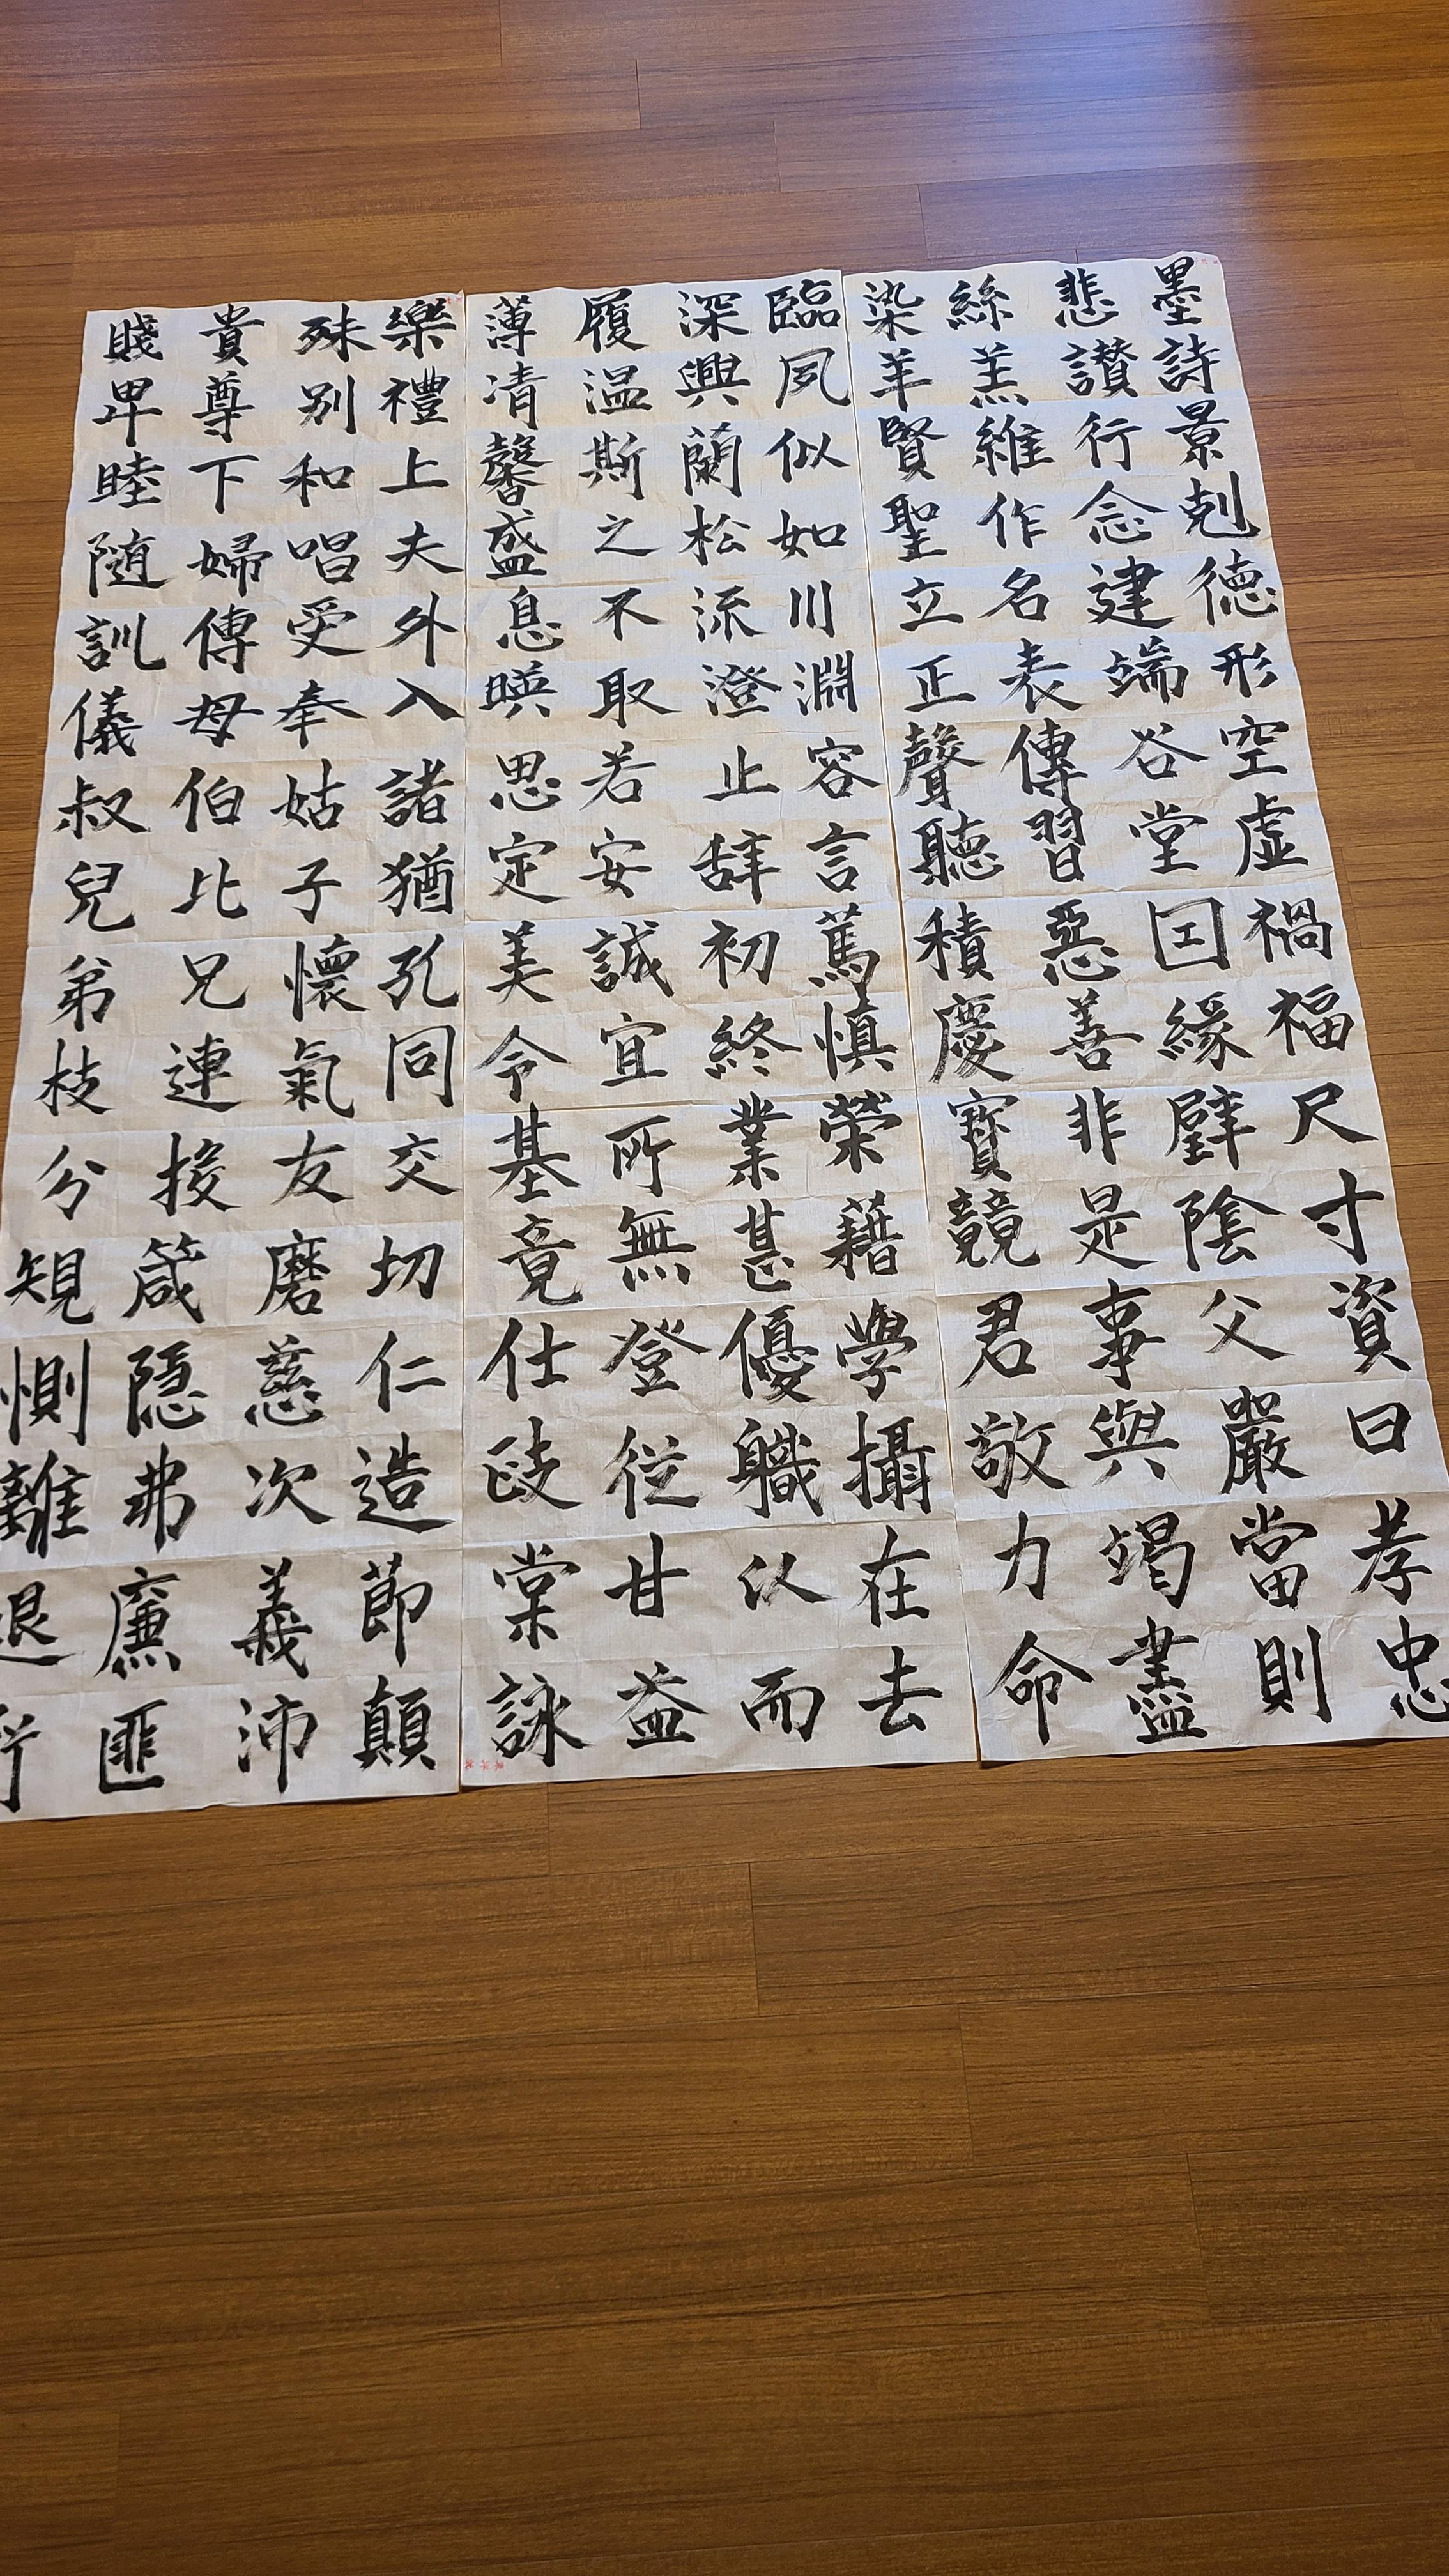 墨悲絲染
詩讃羔羊
景行維賢
剋念作聖
德建名立
形端表正
空谷傳聲
虛堂習聽
禍因惡積
福緣善慶
尺璧非寶
寸陰是競
資父事君
曰嚴與敬
孝當竭力
忠則盡命
臨深履薄
夙興温凊
似蘭斯馨
如松之盛
川流不息
淵澄取暎
容止若思
言辞安定
篤初誠美
慎終宜令
榮業所基
藉甚無竟
學優登仕
攝職從政
在以甘棠
去而益詠
樂殊貴賤
禮別尊卑
上和下睦
夫唱婦随
外受傅訓
入奉母儀
諸姑伯叔
猶子比兒
孔懷兄弟
同氣連枝
交友投分
切磨箴規
仁慈隱惻
造次弗離
節義廉退
顛沛匪